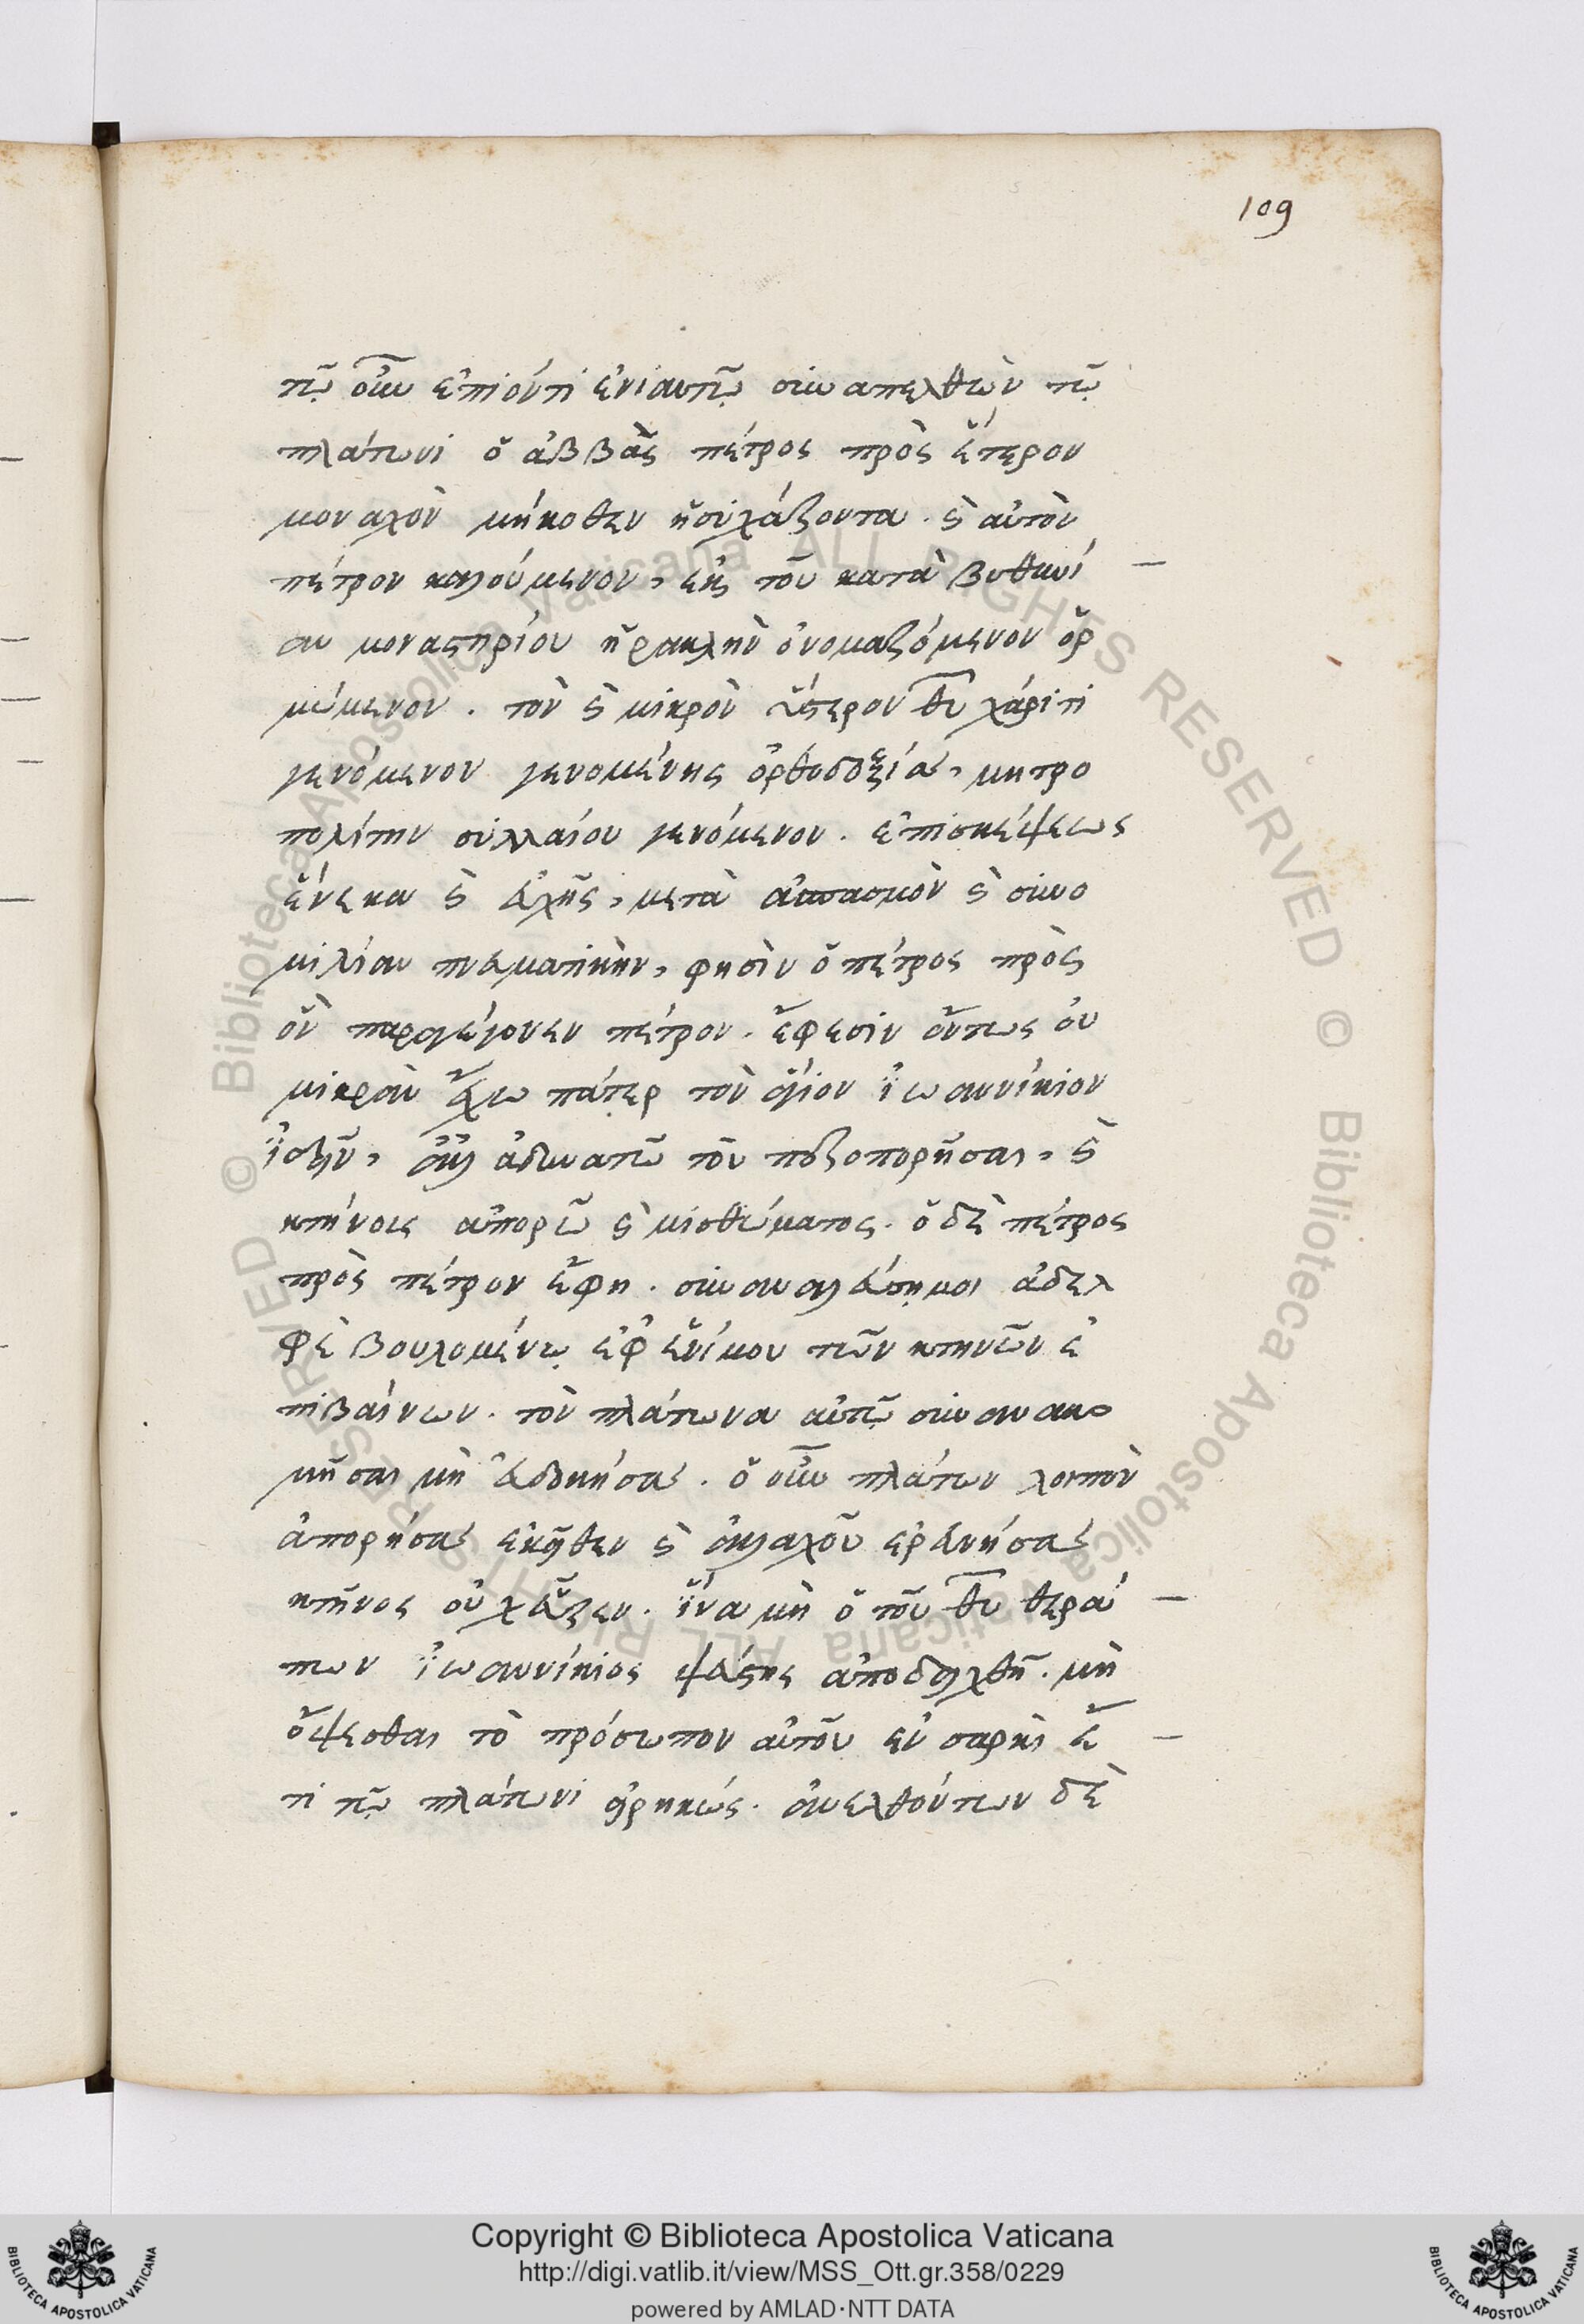 109
τῷ οὖν ἐπιόντι ἐνιαυτῷ συναπελθὼν τῷ
πλάτωνι ὁ ἀββᾶς πέτρος πρὸς ἕτερον
μοναχὸν μήκοθεν ἡσυχάζοντα. ϗ αὐτὸν
πέτρον καλούμενον, ἐκ τοῦ κατὰ βυθινί
αν μοναστηρίου ἡρακλὴν ὀνομαζόμενον ὁρ
μώμενον. τὸν ϗ μικρὸν ὕστερον θυ χάριτι
γενόμενον γενομένης ὀρθοδοξίας, μητρο
πολίτην συλλαίου γενόμενον. ἐπισκέψεως
ἕνεκα ϗ εὐχῆς, μετὰ ἀσπασμὸν ϗ συνο
μιλίαν πνευματικὴν, φησὶν ὁ πέτρος πρὸς
ὃν παραγέγονεν πέτρον. ἔφεσιν οὕτως οὐ
μικρὰν ἔχω πάτερ τὸν ἅγιον ἰωαννίκιον
ἰδεῖν, ἀλλ ἀδυνατῶ τοῦ πεζοπορῆσαι, ϗ
κτήνους ἀπορῶ ϗ μισθώματος. ὁ δὲ πέτρος
πρὸς πέτρον ἔφη. συναναλεύση μοι ἀδελ
φὲ βουλομένω ἐφ ἑνί μου τῶν κτηνῶν ἐ
πιβαίνων. τὸν πλάτωνα αὐτῷ συνανακο
μῆσαι μὴ εὐδοκήσας. ὁ οὖν πλάτων λοιπὸν
ἀπορήσας ἐκεῖθεν ϗ ἀλλαχοῦ ἐρευνήσας
κτῆνος οὐχ εὗρεν. ἵνα μὴ ὁ τοῦ θυ θερά
πων ἰωαννίκιος ψεύστης ἀποδειχθῆ. μὴ
ὄψεσθαι τὸ πρόσωπον αὐτοῦ ἐν σαρκὶ ἔ
τι τῷ πλάτωνι εἰρηκώς. ἀνελθόντων δὲ
Copyright © Biblioteca Apostolica Vaticana
http://digi.vatlib.it/view/MSS_Ott.gr.358/0229
powered by AMLAD·NTT DATA